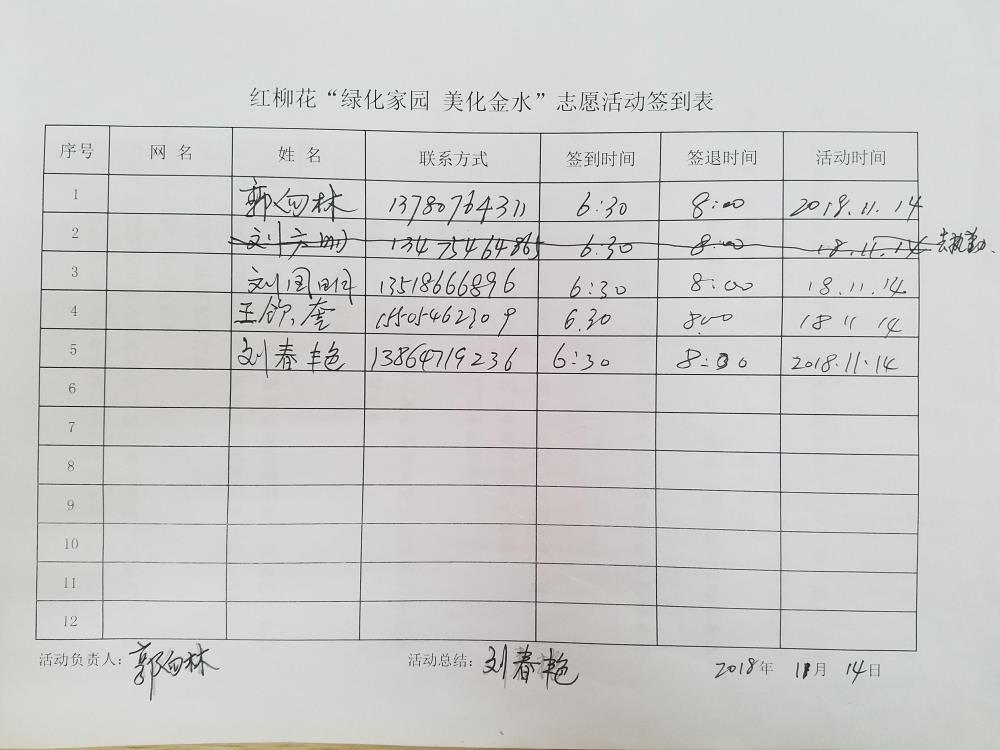 红柳花“绿化家园 美化金水”志愿活动签到表
序号 网名 姓名 联系方式 签到时间 签退时间 活动时间
1 郭向林 13780764311 6:30 8:00 2018.11.14
2 13475464865 6:30 8:00 18.11.14 去执勤
3 刘国明 13518666896 6:30 8:00 18.11.14
4 王 奎 15505462309 6.30 8:00 18 11 14
5 刘春艳 13864719236 6:30 8:30 2018.11.14
6
7
8
9
10
11
12
活动负责人：郭向林 活动总结：刘春艳 2018年 11月 14日